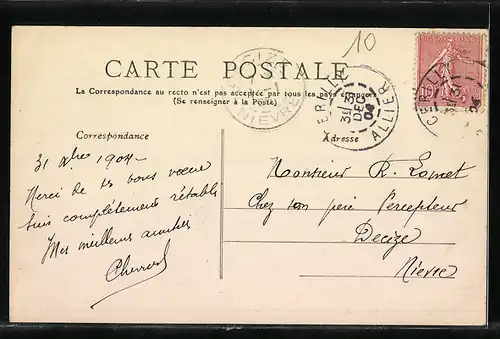 10
CARTE POSTALE
La Correspondance au recto n'est pas acceptée par tous les pays étrangers
(Se renseigner à la Poste)
NIEVRE
3E 31
DEC
04
ALLIER
Correspondance
Adresse
31 Xbre 1904
Merci de vos bons vœux
suis complètement rétabli
Mes meilleures amitiés
Monsieur R. Lomet
Chez son père Percepteur
Decize
Nièvre